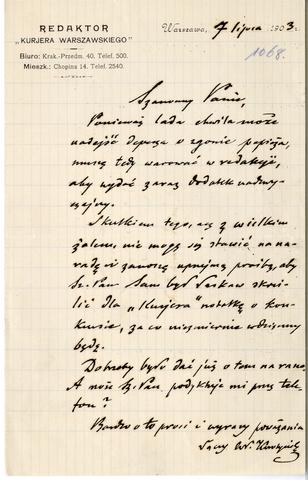 REDAKTOR
„KURJERA WARSZAWSKIEGO"
Biuro: Krak.-Przedm. 40. Telef. 500.
Mieszk.: Chopina 14. Telef. 2540.
Warszawa, 7 lipca 1903 r.
1068.
Szanowny Panie,
Ponieważ lada chwila może
nadejść depesza o zgonie papieża,
muszę tedy warować w redakcji,
aby wydać zaraz dodatek nadzwy-
czajny.
Skutkiem tego, z wielkim
żalem, nie mogę się stawić na na-
radę i zanoszę uprzejmą prośbę, aby
Sz. Pan Sam był łaskaw skreś-
lić dla „Kurjera" notatkę o kon-
kursie, za co niezmiernie wdzięczny
będę.
Dobrzeby było dać już o tem na rano.
A może Sz. Pan podyktuje mi przez tele-
fon?
Bardzo o to prosi i wyrazy poważania
łączy